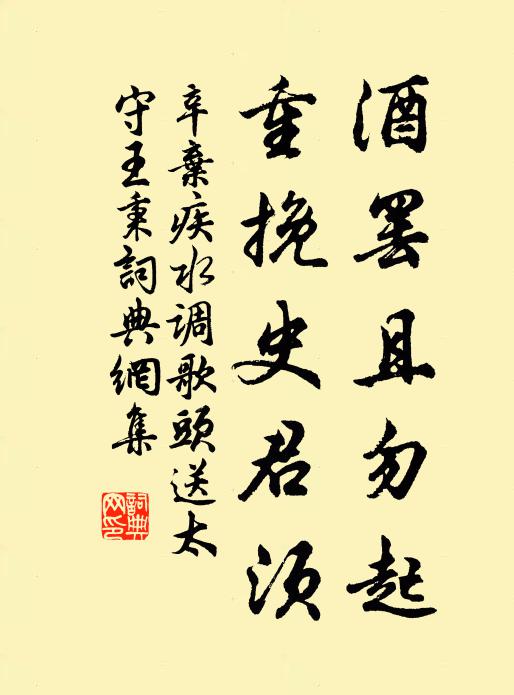 酒罢且勿起
重挽史君须
辛棄疾水调歌頭送太
守王秉詞典網集
詞典網印